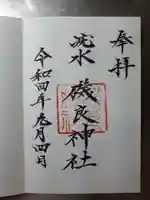 奉拝
疣水 磯良神社
令和四年九月四日